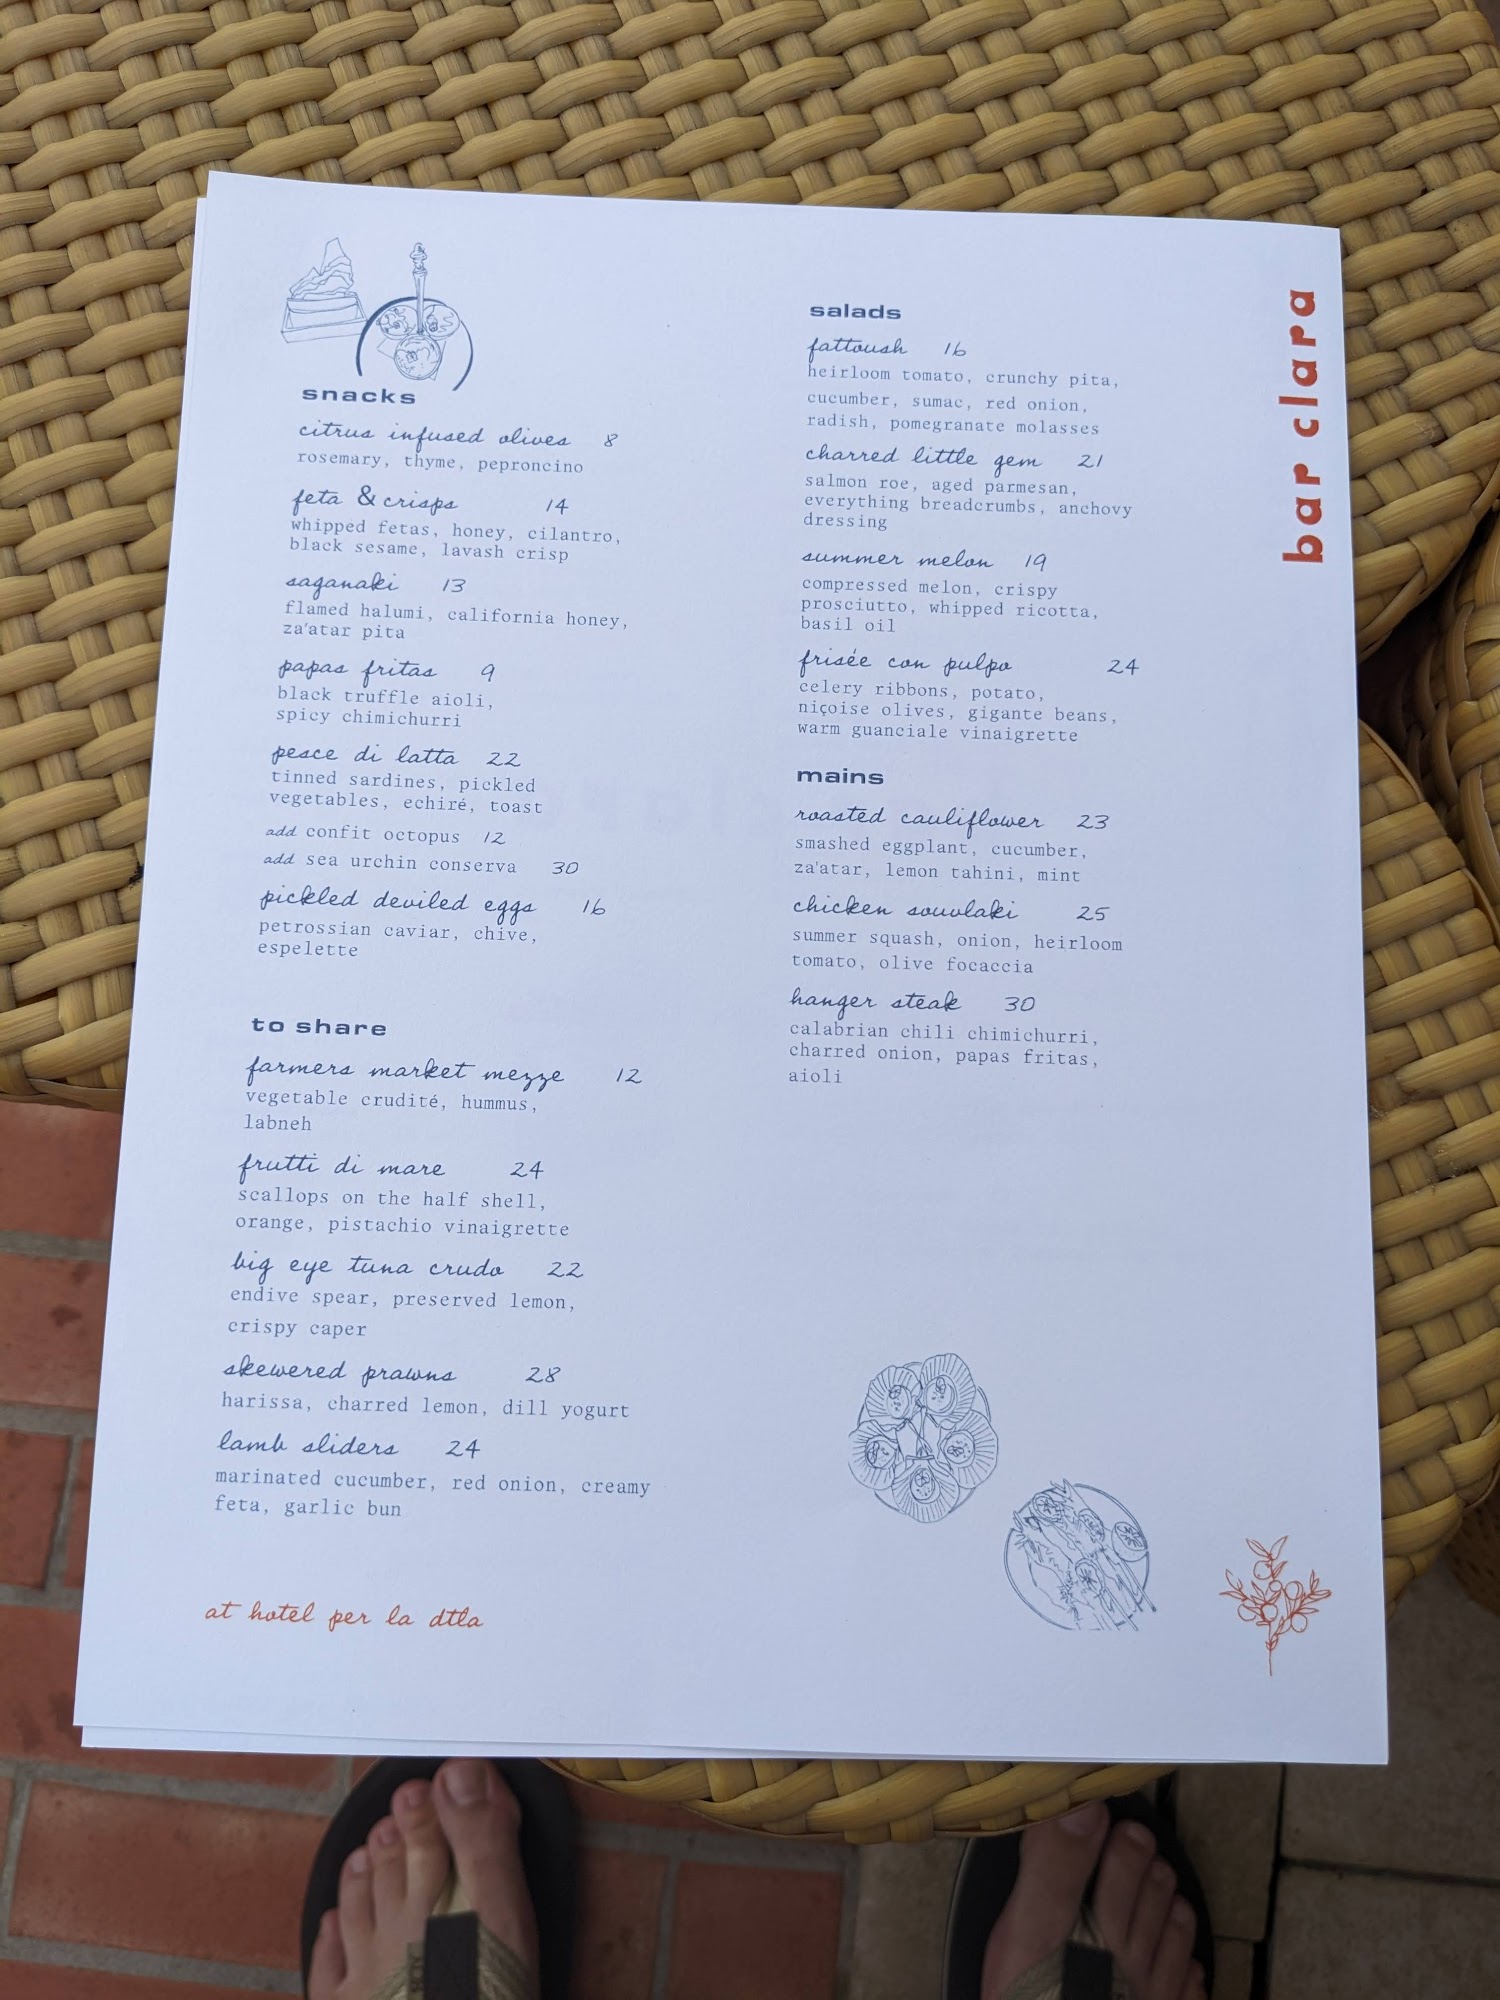 snacks
citrus infused olives 8
rosemary, thyme, peproncino
feta & crisps 14
whipped fetas, honey, cilantro,
black sesame, lavash crisp
saganaki 13
flamed halumi, california honey,
za'atar pita
papas fritas 9
black truffle aioli,
spicy chimichurri
pesce di latta 22
tinned sardines, pickled
vegetables, echiré, toast
add confit octopus 12
add sea urchin conserva 30
pickled deviled eggs 16
petrossian caviar, chive,
espelette
to share
farmers market mezze 12
vegetable crudité, hummus,
labneh
frutti di mare 24
scallops on the half shell,
orange, pistachio vinaigrette
big eye tuna crudo 22
endive spear, preserved lemon,
crispy caper
skewered prawns 28
harissa, charred lemon, dill yogurt
lamb sliders 24
marinated cucumber, red onion, creamy
feta, garlic bun
at hotel per la dtla
salads
fattoush 16
heirloom tomato, crunchy pita,
cucumber, sumac, red onion,
radish, pomegranate molasses
charred little gem 21
salmon roe, aged parmesan,
everything breadcrumbs, anchovy
dressing
summer melon 19
compressed melon, crispy
prosciutto, whipped ricotta,
basil oil
frisée con pulpo 24
celery ribbons, potato,
niçoise olives, gigante beans,
warm guanciale vinaigrette
mains
roasted cauliflower 23
smashed eggplant, cucumber,
za'atar, lemon tahini, mint
chicken souvlaki 25
summer squash, onion, heirloom
tomato, olive focaccia
hanger steak 30
calabrian chili chimichurri,
charred onion, papas fritas,
aioli
bar clara